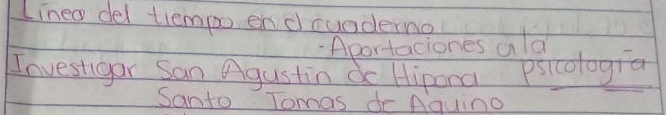 Linea del tiempo en el cuaderno
- Aportaciones a la
Investigar San Agustin de Hipona psicología
Santo Tomas de Aquino